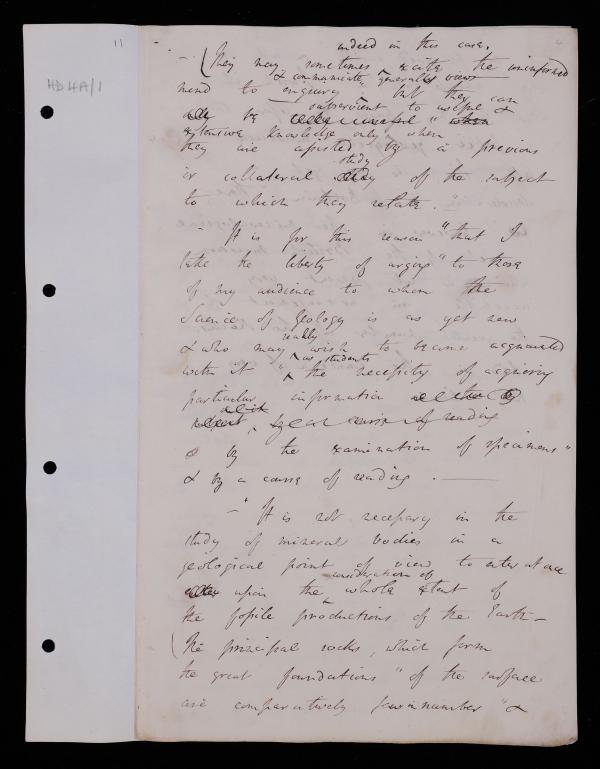 11
HD 4A/1
4
indeed in this case.
– (They may sometimes excite the uninformed
& communicate general views
mind to enquiry but they can
subservient to useful &
only be "when
extensive knowledge only when
they are assisted by a previous
study
or collateral of the subject
to which they relate."
– It is for this reason "that I
take the liberty of urging" to those
of my audience to whom the
Science of Geology is as yet new
really
& who may wish to become acquainted
as students
with it " the necessity of acquiring
particular information either by
course of reading
by the examination of specimens"
& by a course of reading. —
– "It is not necessary in the
study of mineral bodies in a
geological point of view to enter at once
consideration of
upon the whole extent of
the fossile productions of the Earth –
(The principal rocks, which form
the great foundations " of the surface
are comparatively few in number " &